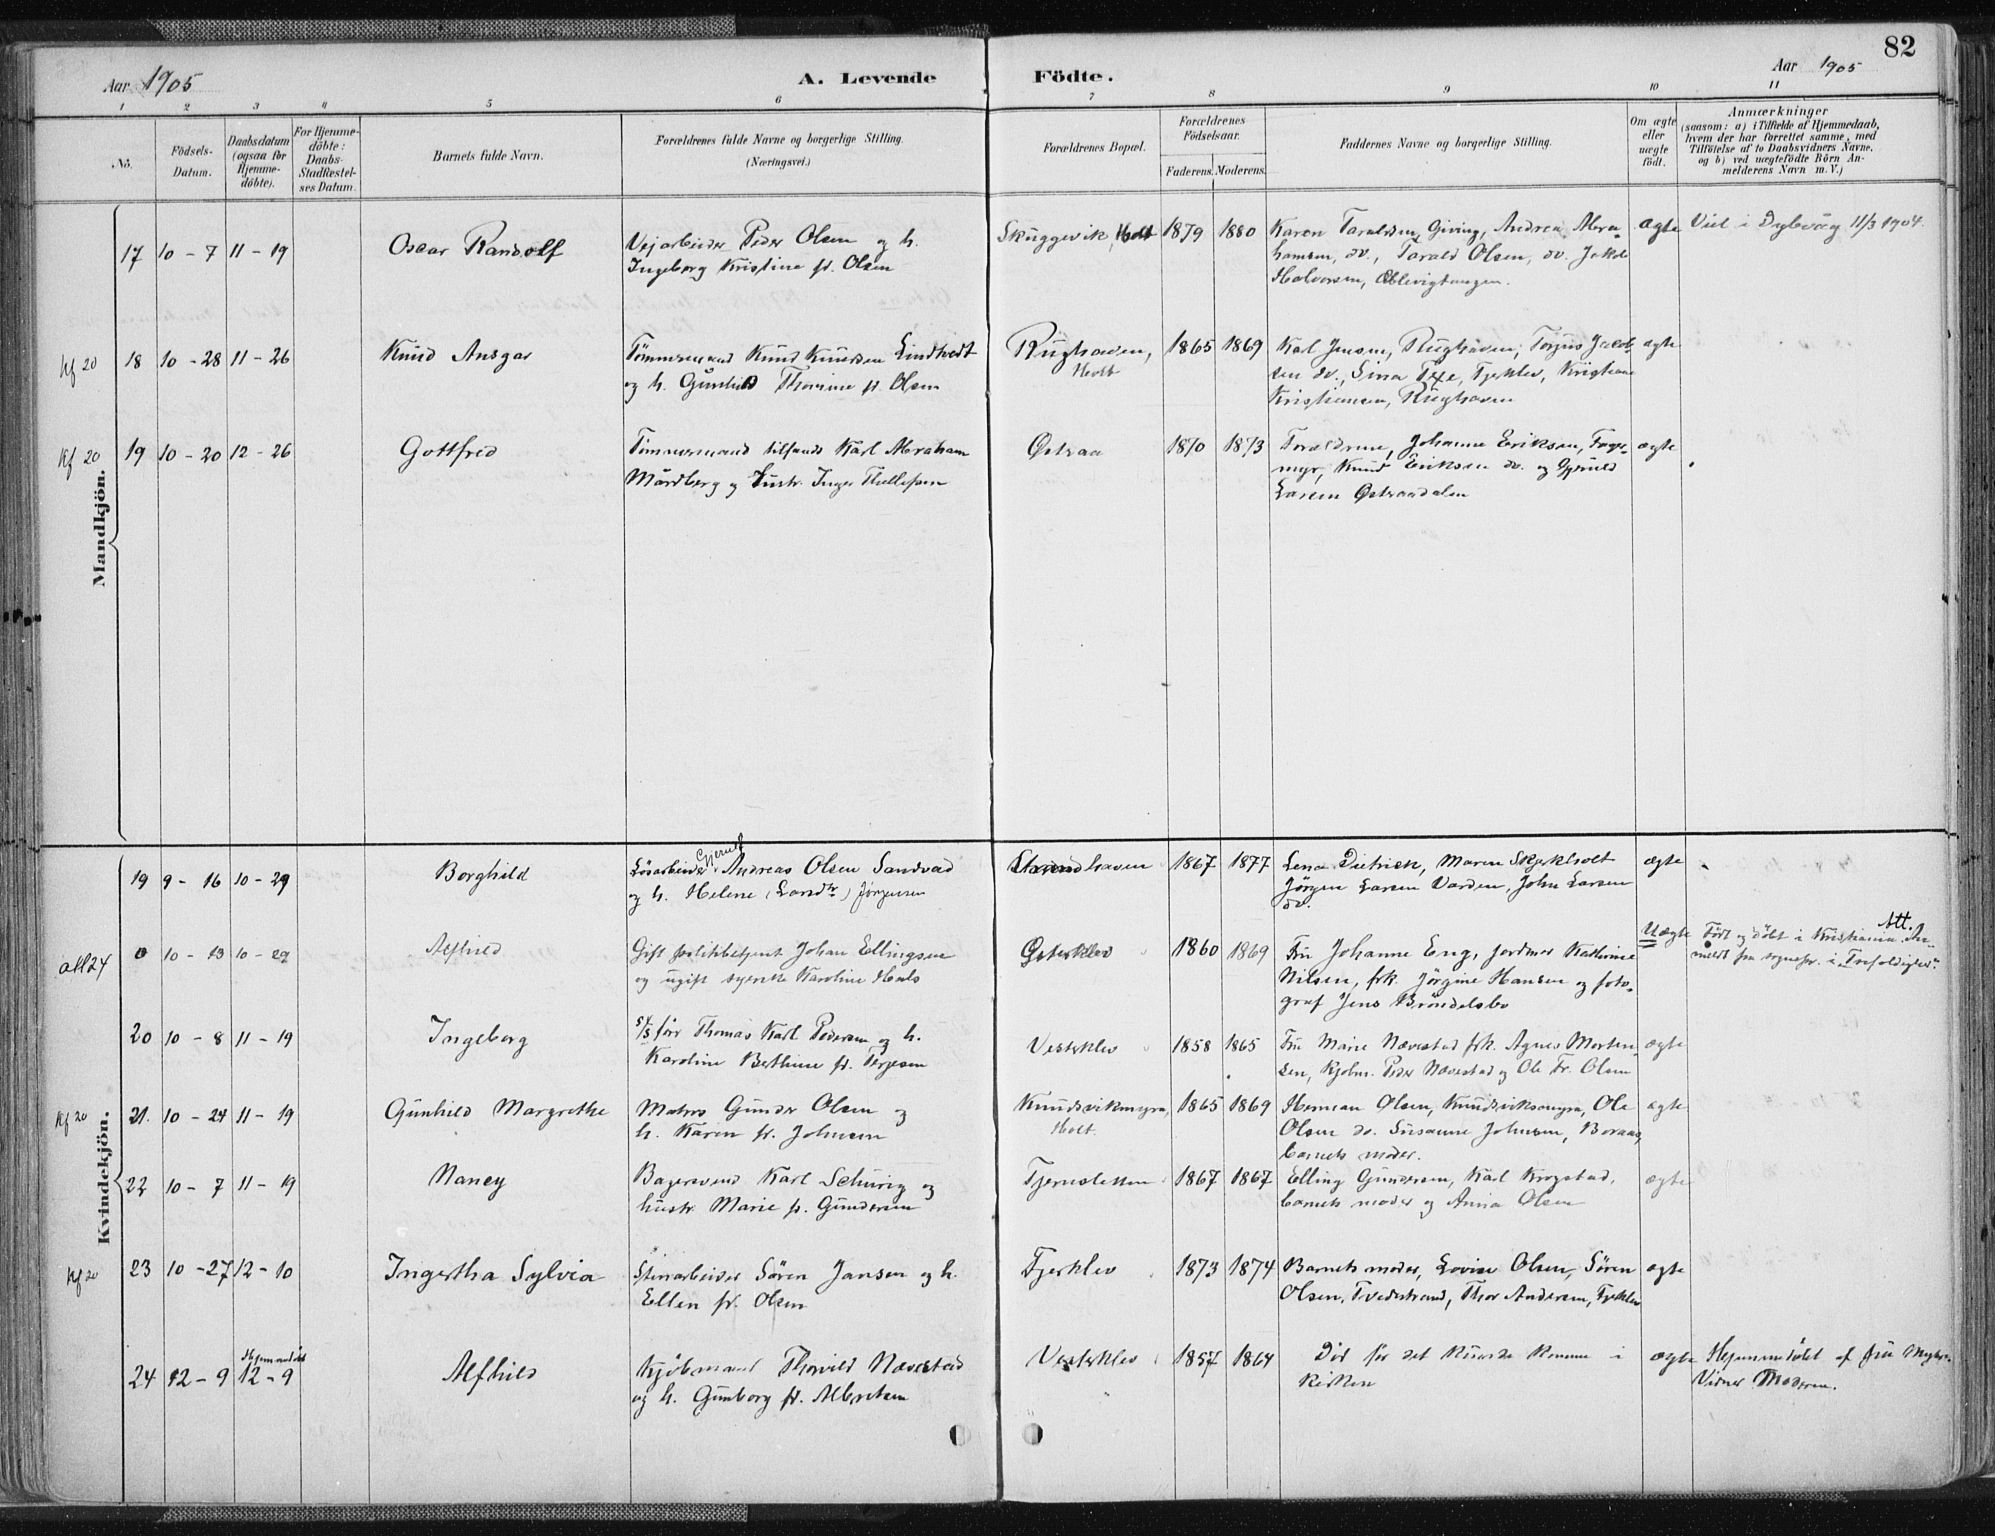 82
Aar 1905
A. Levende
Födte.
Aar 1905
1 2 3 4 5 6 7 8 9 10 11
No.
Födsels-
Datum.
Daabsdatum
(ogsaa for
Hjemme-
döbte).
For Hjemme-
döbte:
Daabs-
Stadfæstel-
ses Datum.
Barnets fulde Navn.
Forældrenes fulde Navne og borgerlige Stilling.
(Næringsvei.)
Forældrenes Bopæl.
Forældrenes
Födselsaar.
Faderens. Moderens.
Faddernes Navne og borgerlige Stilling.
Om ægte
eller
uægte
födt.
Anmærkninger
(saasom: a) i Tilfælde af Hjemmedaab,
hvem der har forrettet samme, med
Tilföielse af to Daabsvidners Navne,
og b) ved uægtefödte Börn An-
melderens Navn m. V.)
Mandkjön.
17 10 - 7 11 - 19 Oscar Randolf
Vejarbeider Peder Olsen og h.
Ingeborg Kristine f. Olsen
Skuggevik, Holt 1879 1880
Karen Taraldsen, Giving, Andrea Abra-
hamsen, do., Tarald Olsen, do. Jakob
Halvorsen,
ægte
Viet i Dybvåg 11/3 1904.
kf 20 18 10 - 28 11 - 26 Knud Ansgar
Tömmermand Knud Knudsen Lindtvedt
og h. Gunhild Thomine f. Olsen
Rughaven,
Holt
1865 1869
Karl Jensen, Rughaven, Torjus Jacob-
sen do., Sina Texe, Fjerklev, Kristiane
Kristiansen, Rughaven
ægte
kf 20 19 10 - 20 12 - 26 Gottfred
Tömmermand tillands Karl Abraham
Mårdberg og hustr. Inger Thellefsen
Østraa 1870 1873
Forældrene, Johanne Eriksen, Fage-
myr, Knud Eriksen do. og
Larsen Østraadalen
ægte
Kvindekjön.
19 9 - 16 10 - 29 Borghild
Gjeruld
Lösarbeider Andreas Olsen Sandvad
og h. Helene (Lars dtr) Jörgensen
Strandhaven 1867 1877
Lena Dietrich, Maren Skjerkholt
Jörgen Larsen Varden, John Larsen
do.
ægte
att 24 0 10 - 13 10 - 29 Alfhild
Gift politibetjent Johan Ellingsen
og ugift syerske Karoline Hals
Østerklev 1860 1869
Fru Johanne Eng, jordmor Kathrine
Nilsen, frk. Jörgine Hansen og foto-
graf Jens Bröndelsbo
Uægte
Att.
Født og döbt i Kristiania. An-
meldt fra sognepr. i Trefoldighed.
20 10 - 8 11 - 19 Ingeborg
s/sförer Thomas Karl Pedersen og h.
Karoline Bethine f. Terjesen
Vesterklev 1858 1865
Fru Marie Nævestad frk. Agnes Morten-
sen, kjøbm. Peder Nævestad og Ole Fr. Olsen
ægte
Kf 20 21. 10 - 24 11 - 19 Gunhild Margrethe
Matros Gunder Olsen og
h. Karen f. Johnsen
Knudsvikmyra,
Holt.
1865 1869
Herman Olsen, Knudsviksmyra, Ole
Olsen do. Susanne Johnsen, Boraas,
barnets moder.
ægte
22 10 - 7 11 - 19 Nancy
Bagersvend Karl Schürig og
hustr. Marie f. Gundersen
Tjernsletten 1867 1867
Elling Gundersen, Karl Krogstad,
barnets moder og Anna Olsen
ægte
kf 20 23 10 - 27 12 - 10 Ingertha Sylvia
Stenarbeider Sören Jansen og h.
Ellen f. Olsen
Fjerklev 1873 1874
Barnets moder, Lovise Olsen, Sören
Olsen, Tvedestrand, Thor Andersen, Fjerklev
ægte
24 12 - 9
Hjemmedöbt
12 - 9
Alfhild
Kjöbmand Thorvild Nævestad
og h. Gunborg f. Albretsen
Vesterklev 1857 1864
Död för det kunde komme i
kirken
ægte
Hjemmedöbt af fru
Vidner Moderen.